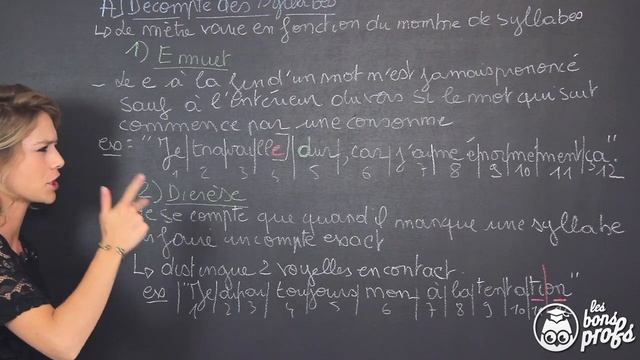 A) Décompte des syllabes
↳ le mètre varie en fonction du nombre de syllabes
1) E muet
- Le e à la fin d'un mot n'est jamais prononcé
sauf à l'intérieur du vers si le mot qui suit
commence par une consonne
ex: "Je | travaille | dur, car j'aime énormément ça."
1 2 3 4 5 6 7 8 9 10 11 12
2) Dièrèse
se compte que quand il manque une syllabe
faire un compte exact
↳ distingue 2 voyelles en contact.
ex "Je toujours mon à la tentation"
1 2 3 4 5 6 7 8 9 10
les bons profs